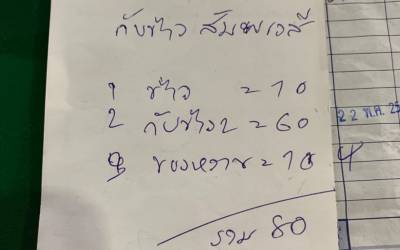 กับข้าว
1 ข้าว = 10
2 กับข้าว 2 = 60
3 ของหวาน = 10 4
รวม 80
22 พ.ค. 25